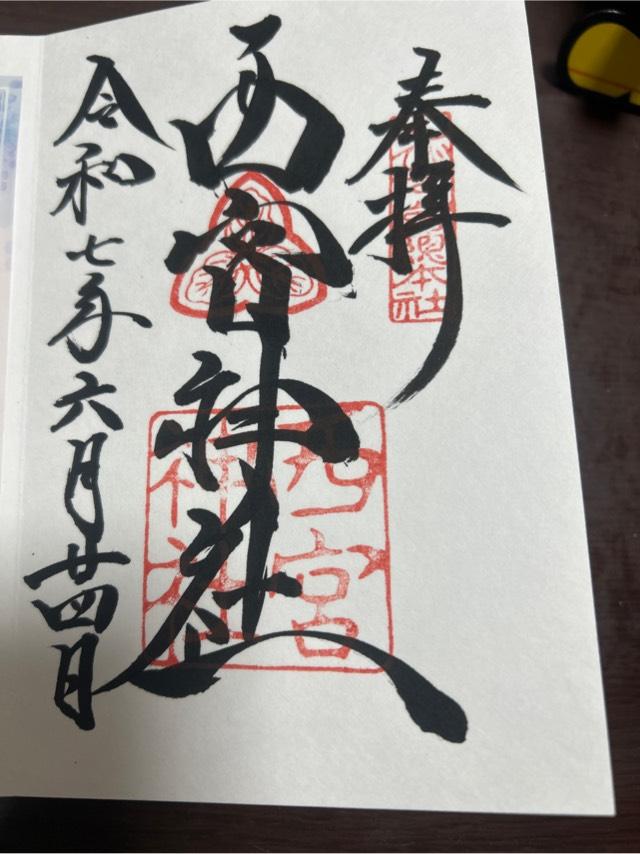 奉拝
西宮神社
令和七年六月廿四日
本社
西宮
神社